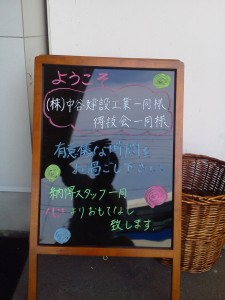 ようこそ
(株)中谷建設工業一同様
博技会一同様
有意義な時間を
お過ごし下さい
納得スタッフ一同
心よりおもてなし
致します